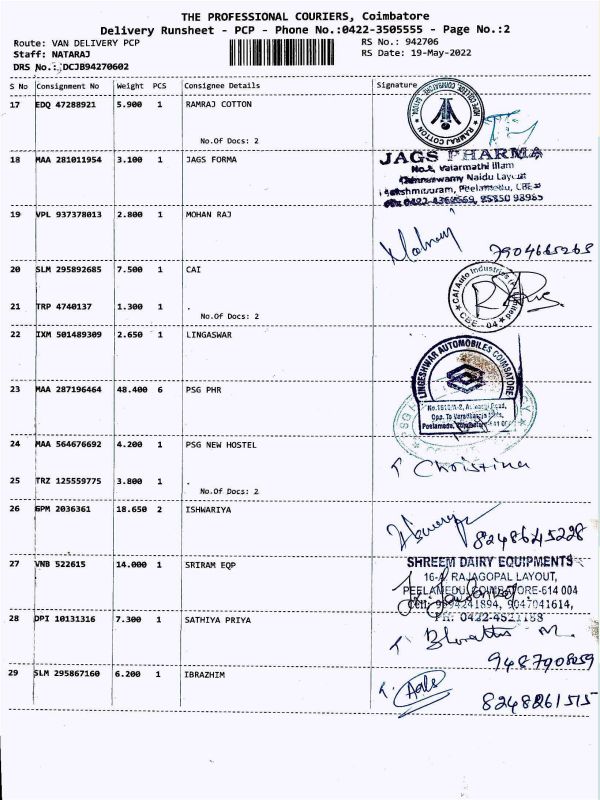 THE PROFESSIONAL COURIERS, Coimbatore
Delivery Runsheet - PCP - Phone No.:0422-3505555 - Page No.:2
Route: VAN DELIVERY PCP RS No.: 942706
Staff: NATARAJ RS Date: 19-May-2022
DRS No.: DCJB94270602
S No Consignment No Weight PCS Consignee Details Signature
17 EDQ 47288921 5.900 1 RAMRAJ COTTON
RAMRAJ COTTON
No.Of Docs: 2
18 MAA 281011954 3.100 1 JAGS FORMA
JAGS PHARMA
Valarmathi Illam
Naidu Layout
Peelamedu, CBE
19 VPL 937378013 2.800 1 MOHAN RAJ
7904665265
20 SLM 295892685 7.500 1 CAI
CAI Auto Industries
CBE - 04
21 TRP 4740137 1.300 1 .
No.Of Docs: 2
22 IXM 501489309 2.650 1 LINGASWAR
LINGESHWAR AUTOMOBILES COIMBATORE
23 MAA 287196464 48.400 6 PSG PHR
24 MAA 564676692 4.200 1 PSG NEW HOSTEL
Christina
25 TRZ 125559775 3.800 1 .
No.Of Docs: 2
26 GPM 2036361 18.650 2 ISHWARIYA
8248645228
27 VNB 522615 14.000 1 SRIRAM EQP
SHREEM DAIRY EQUIPMENTS
16-A, RAJAGOPAL LAYOUT,
PEELAMEDU, COIMBATORE-614 004
Cell: 9994241894, 9047041614,
PH: 0422-4521188
28 DPI 10131316 7.300 1 SATHIYA PRIYA
9487908059
29 SLM 295867160 6.200 1 IBRAZHIM
8248261515